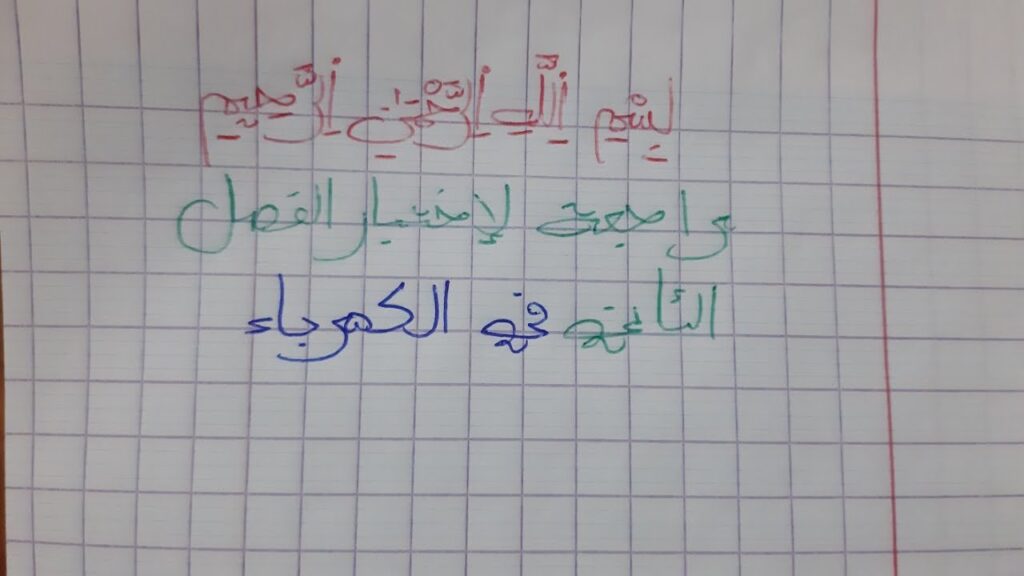 بِسْمِ اللَّهِ الرَّحْمَنِ الرَّحِيمِ
مراجعة لإختبار الفصل
الثاني في الكهرباء